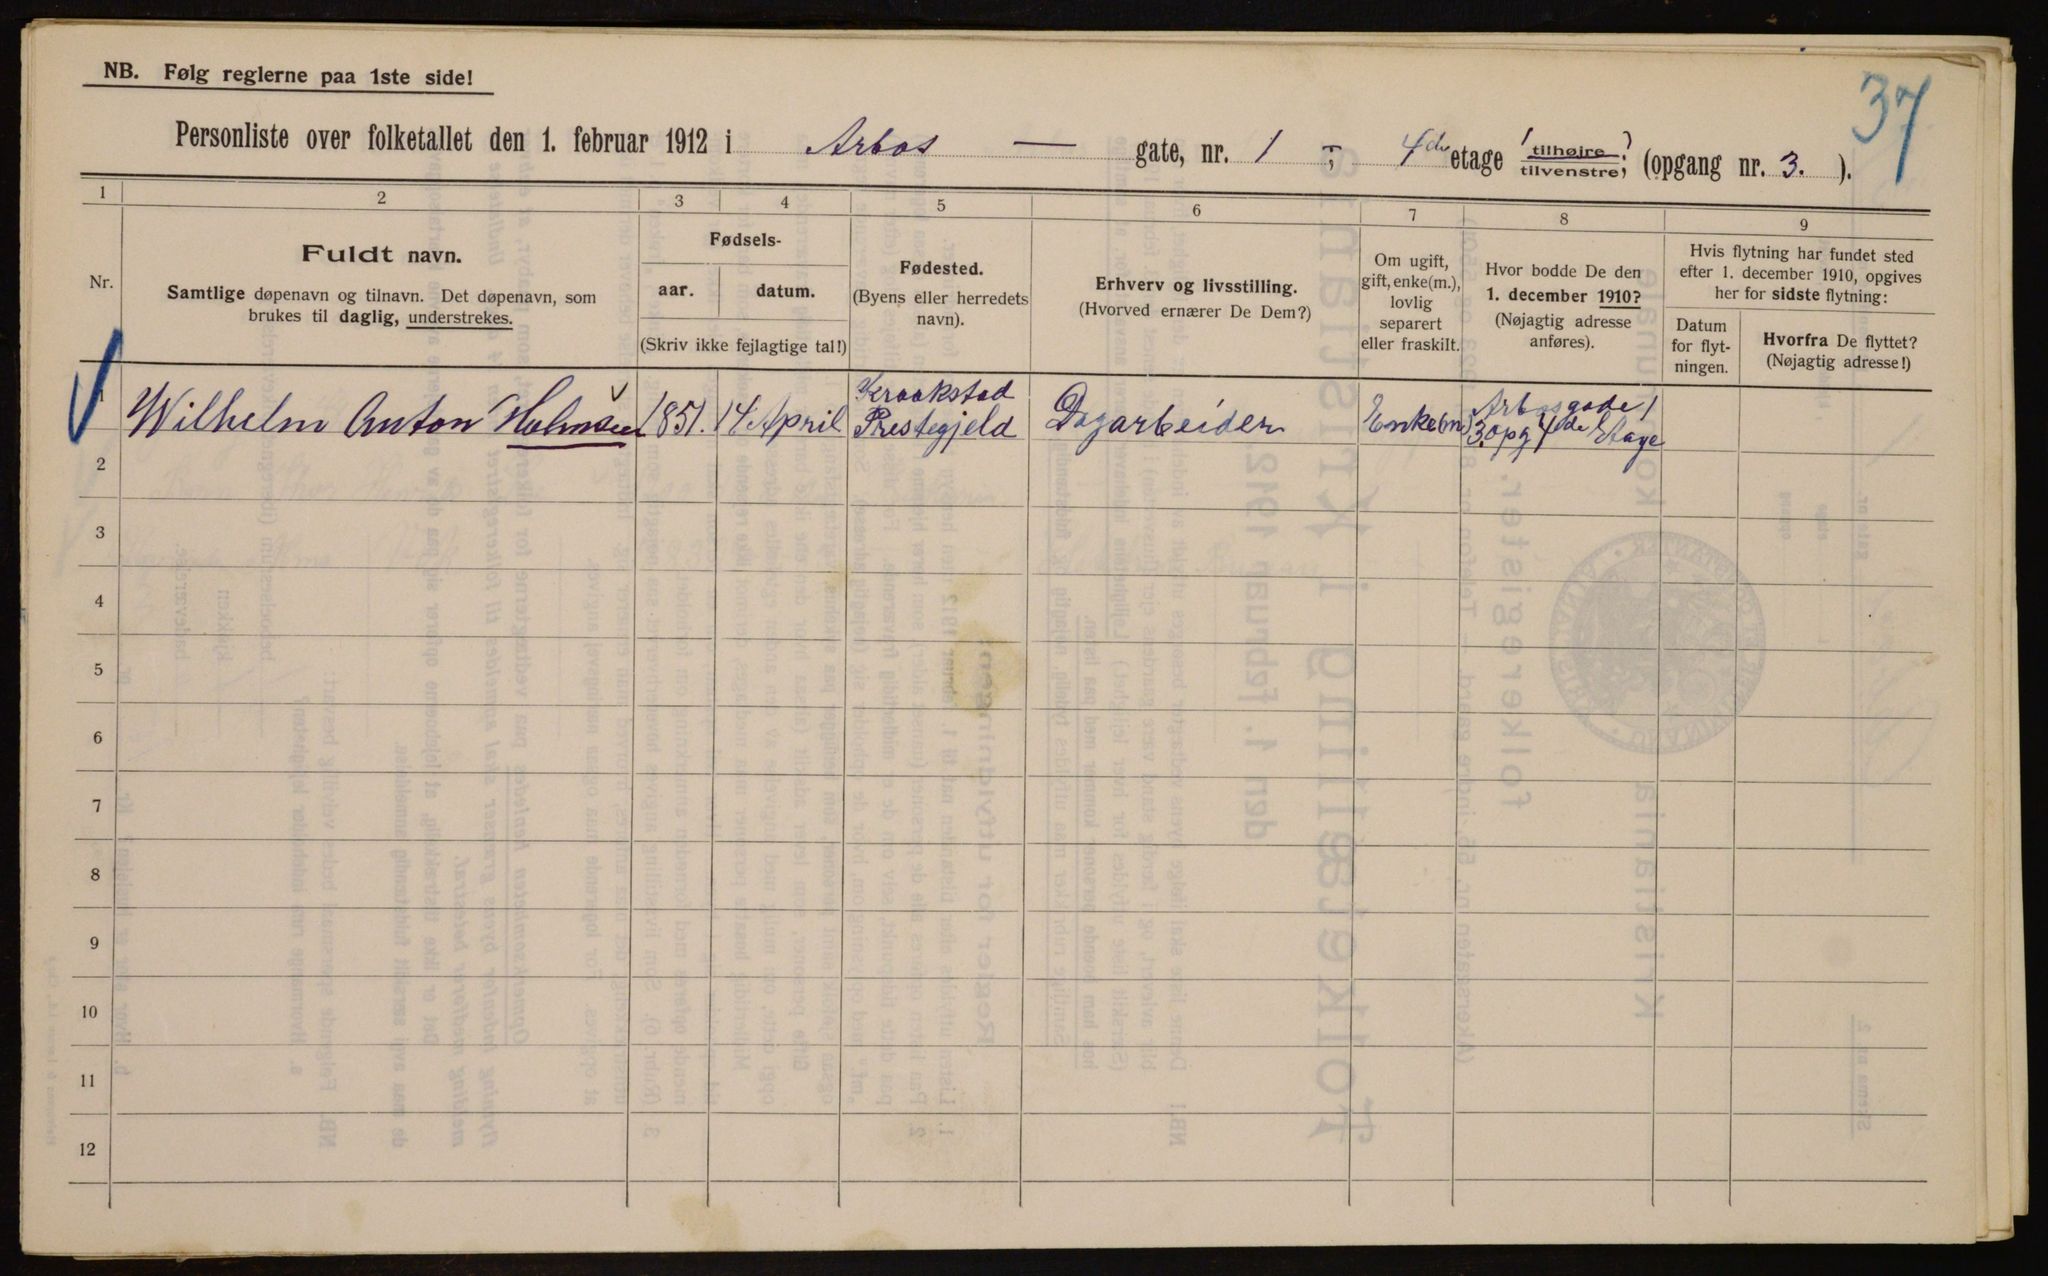 NB. Følg reglerne paa 1ste side!
37
Personliste over folketallet den 1. februar 1912 i Arbos — gate, nr. 1 ; 4de etage (tilhøjre, tilvenstre,?) (opgang nr. 3. ).
1 2 3 4 5 6 7 8 9
Nr.
Fuldt navn.
Samtlige døpenavn og tilnavn. Det døpenavn, som
brukes til daglig, understrekes.
Fødsels-
aar. datum.
(Skriv ikke fejlagtige tal!)
Fødested.
(Byens eller herredets
navn).
Erhverv og livsstilling.
(Hvorved ernærer De Dem?)
Om ugift,
gift, enke(m.),
lovlig
separert
eller fraskilt.
Hvor bodde De den
1. december 1910?
(Nøjagtig adresse
anføres).
Hvis flytning har fundet sted
efter 1. december 1910, opgives
her for sidste flytning:
Datum
for flyt-
ningen.
Hvorfra De flyttet?
(Nøjagtig adresse!)
1 Wilhelm Anton Holmsen 1851. 14 April Kraakstad Prestegjeld Dagarbeider Enke(m) Arbosgade 1 3.opg 4de Etage
2
3
4
5
6
7
8
9
10
11
12